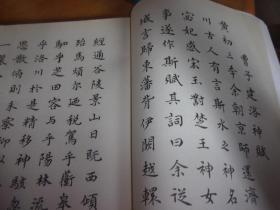 曹子建洛神賦
黃初三年余朝京師還濟
川古人有言斯水之神名
宓妃感宋玉對楚王神女
事遂作斯賦其詞曰余從
域言歸東藩背伊闕越轘
經通谷陵景山日旣西傾
殆馬煩爾迺稅駕乎蘅皋
駟乎芝田容與乎陽林
乎洛川於是精移神駭
思散俯則未察仰以